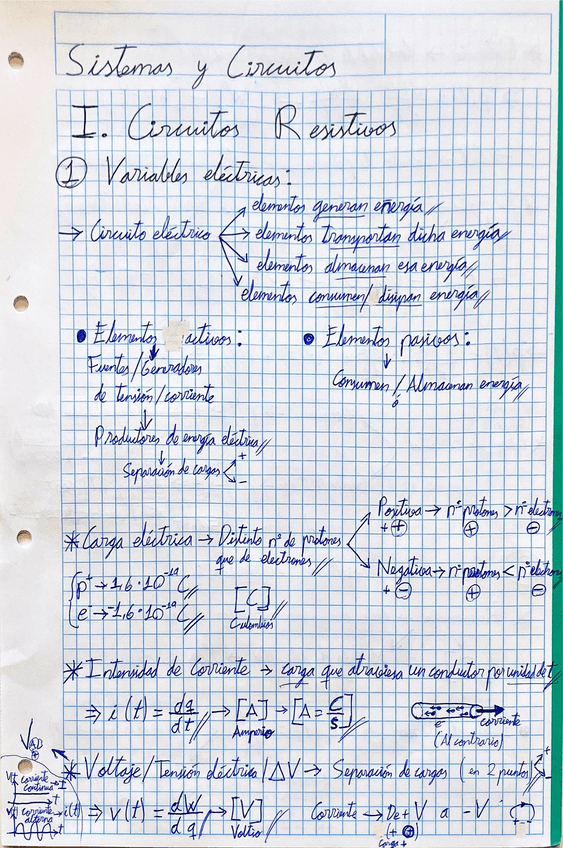 Sistemas y Circuitos
I. Circuitos Resistivos
① Variables eléctricas:
→ Circuito eléctrico
elementos generan energía
elementos transportan dicha energía
elementos almacenan esa energía
elementos consumen/disipan energía
• Elementos activos:
Fuentes/Generadores
de tensión/corriente
Productores de energía eléctrica
Separación de cargas < + -
• Elementos pasivos:
Consumen / Almacenan energía
ó
* Carga eléctrica → Distinto nº de protones
que de electrones
Positiva → nº protones > nº electrones
+ ⊕ ⊕ ⊖
Negativa → nº protones < nº electrones
+ ⊖ ⊕ ⊖
p+ → 1,6·10⁻¹⁹ C
e- → -1,6·10⁻¹⁹ C
[C]
Culombios
* Intensidad de Corriente → carga que atraviesa un conductor por unidad de t
⇒ i(t) = dq/dt → [A] → [A = C/s]
Amperio
e- corriente
(Al contrario)
* Voltaje/Tensión eléctrica/ΔV → Separación de cargas (en 2 puntos) + -
⇒ v(t) = dW/dq → [V]
Voltio
Corriente → De +V a -V
(+ ⊕)
carga +
corriente
continua
t
corriente
alterna
i(t)
t